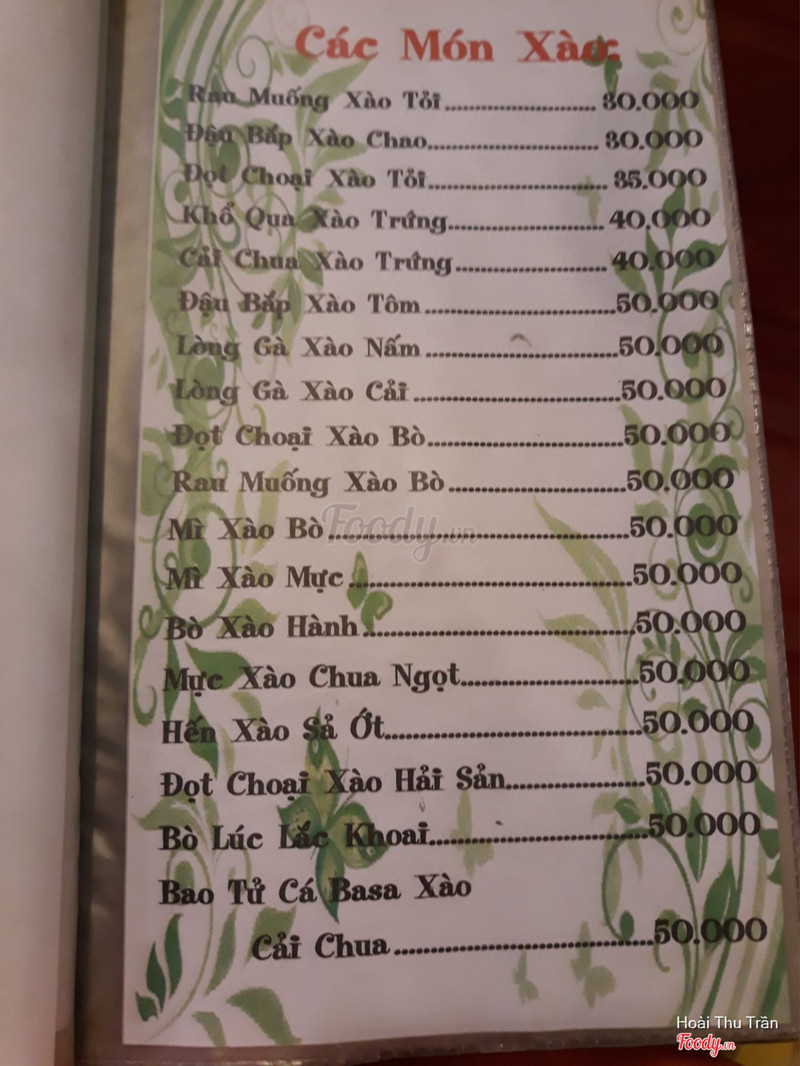 Các Món Xào:
Rau Muống Xào Tỏi........................ 30.000
Đậu Bắp Xào Chao........................... 30.000
Đọt Choại Xào Tỏi............................ 35.000
Khổ Qua Xào Trứng......................... 40.000
Cải Chua Xào Trứng........................ 40.000
Đậu Bắp Xào Tôm..............................50.000
Lòng Gà Xào Nấm..............................50.000
Lòng Gà Xào Cải................................50.000
Đọt Choại Xào Bò..............................50.000
Rau Muống Xào Bò............................50.000
Mì Xào Bò..............................................50.000
Mì Xào Mực...........................................50.000
Bò Xào Hành.........................................50.000
Mực Xào Chua Ngọt...........................50.000
Hến Xào Sả Ớt......................................50.000
Đọt Choại Xào Hải Sản.....................50.000
Bò Lúc Lắc Khoai................................50.000
Bao Tử Cá Basa Xào
Cải Chua......................................50.000
Foody.vn
Hoài Thu Trần
Foody.vn